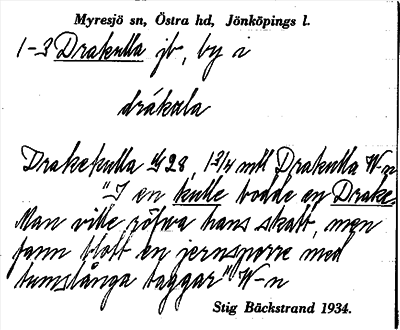 Myresjö sn, Östra hd, Jönköpings l.
1-3 Drakulla jb, by i
drákala
Drakekulla 28, 1 3/4 mtl Drakulla W-n
"I en kulle bodde en Drake.
Man ville röfva hans skatt, men
fann blott en jernsporre med
tumslånga taggar" W-n
Stig Bäckstrand 1934.